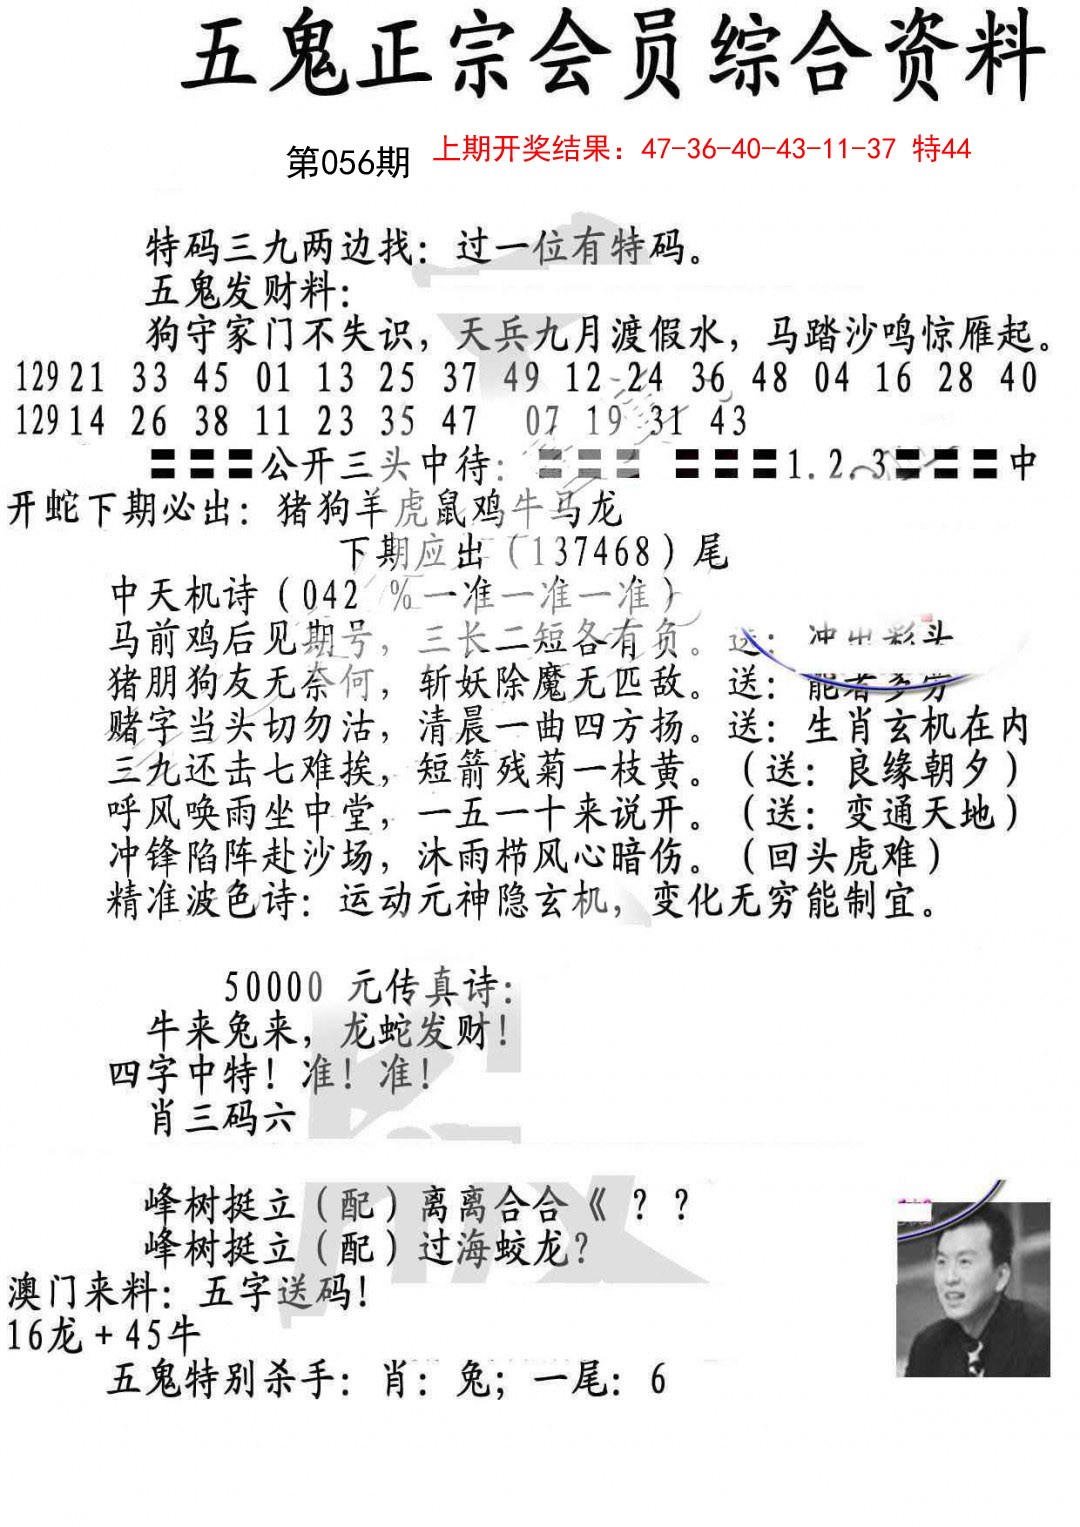 五鬼正宗会员综合资料
第056期 上期开奖结果：47-36-40-43-11-37 特44
特码三九两边找：过一位有特码。
五鬼发财料：
狗守家门不失识，天兵九月渡假水，马踏沙鸣惊雁起。
129 21 33 45 01 13 25 37 49 12 24 36 48 04 16 28 40
129 14 26 38 11 23 35 47 07 19 31 43
〓〓〓公开三头中待：〓〓〓 〓〓〓1.2.3〓〓〓中
开蛇下期必出：猪狗羊虎鼠鸡牛马龙
下期应出（137468）尾
中天机诗（042 %一准一准一准）
马前鸡后见期号，三长二短各有负。送：冲出彩头
猪朋狗友无奈何，斩妖除魔无匹敌。送：能者多劳
赌字当头切勿沽，清晨一曲四方扬。送：生肖玄机在内
三九还击七难挨，短箭残菊一枝黄。（送：良缘朝夕）
呼风唤雨坐中堂，一五一十来说开。（送：变通天地）
冲锋陷阵赴沙场，沐雨栉风心暗伤。（回头虎难）
精准波色诗：运动元神隐玄机，变化无穷能制宜。
50000 元传真诗：
牛来兔来，龙蛇发财！
四字中特！准！准！
肖三码六
峰树挺立（配）离离合合《？？
峰树挺立（配）过海蛟龙？
澳门来料：五字送码！
16龙+45牛
五鬼特别杀手：肖：兔；一尾：6